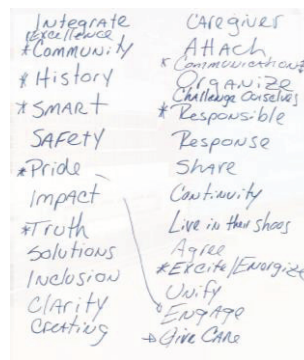 Integrate
Excellence
*Community
*History
*SMART
SAFETY
*Pride
Impact
*Truth
Solutions
Inclusion
Clarity
Creating
Caregiver
Attach
*Communication
Organize
Challenge Ourselves
*Responsible
Response
Share
Continuity
Live in their shoes
Agree
*Excite/Energize
Unify
Engage
Give CARE